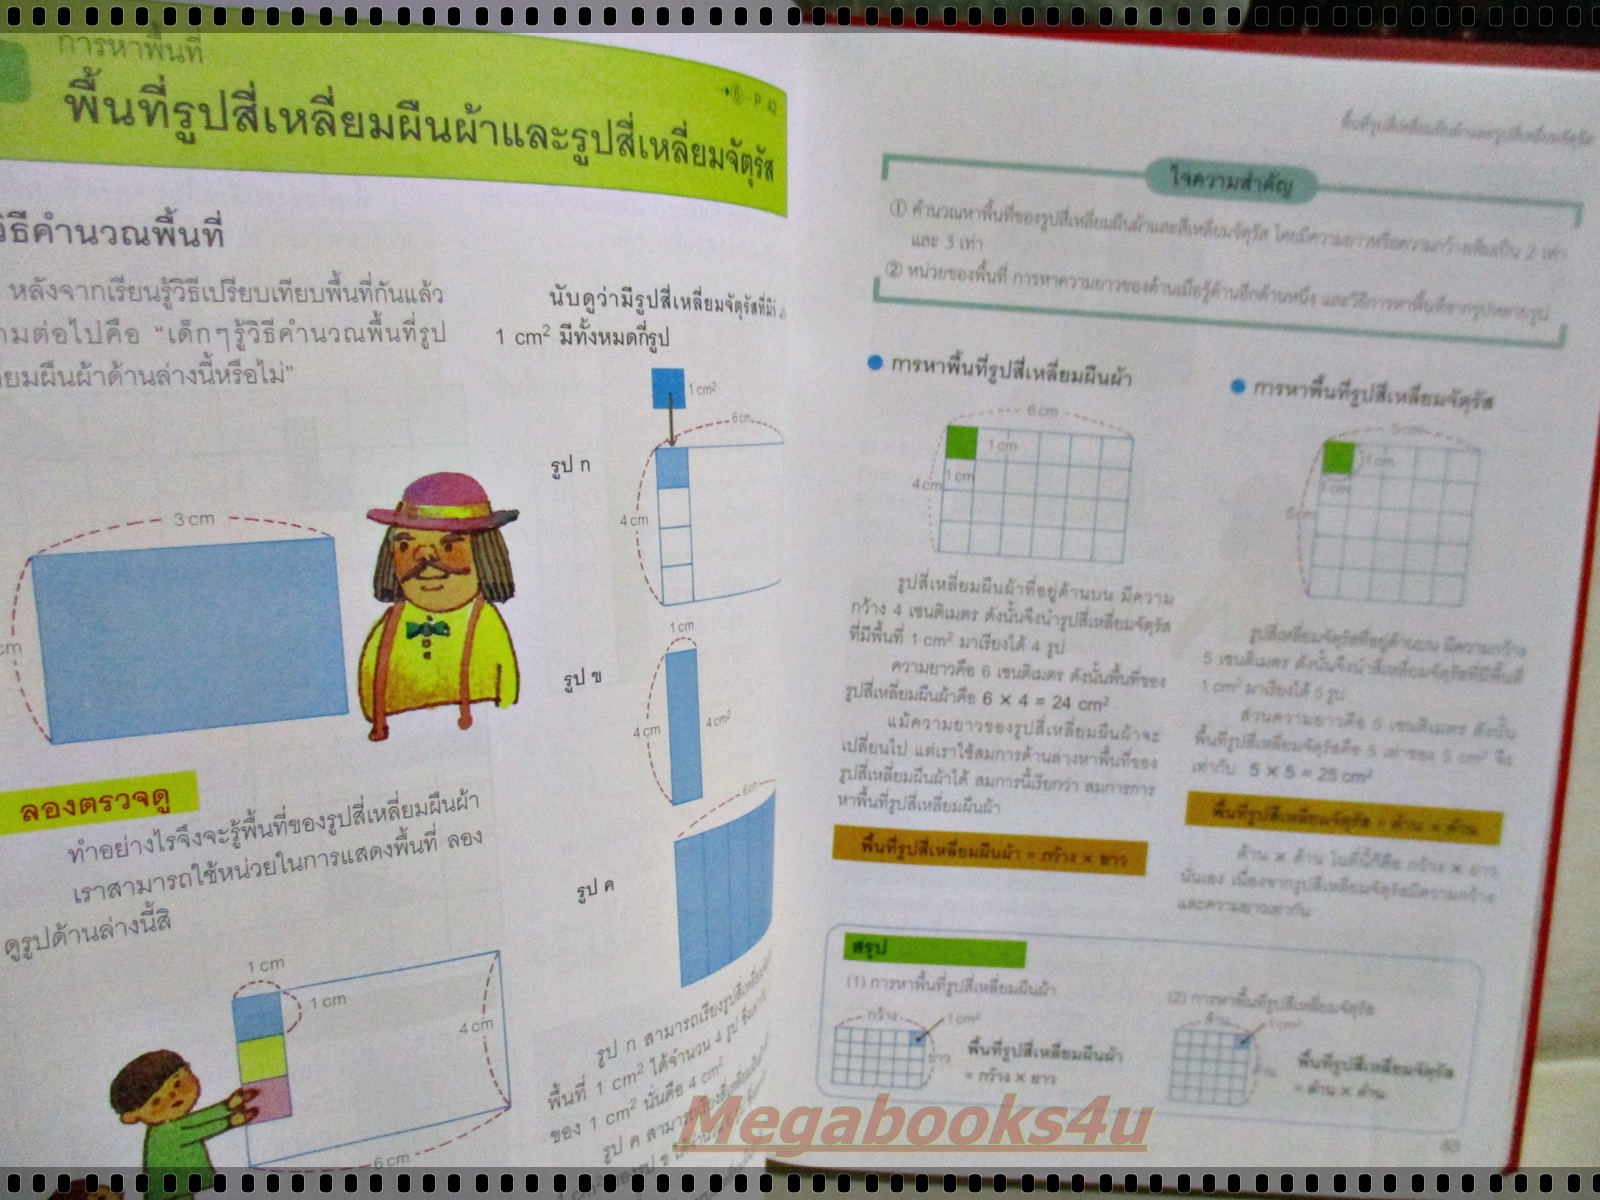 การหาพื้นที่
พื้นที่รูปสี่เหลี่ยมผืนผ้าและรูปสี่เหลี่ยมจัตุรัส
วิธีคำนวณพื้นที่
หลังจากเรียนรู้วิธีเปรียบเทียบพื้นที่กันแล้ว
ต่อไปคือ “เด็กๆรู้วิธีคำนวณพื้นที่รูป
ผืนผ้าด้านล่างนี้หรือไม่”
3 cm
cm
ลองตรวจดู
ทำอย่างไรจึงจะรู้พื้นที่ของรูปสี่เหลี่ยมผืนผ้า
เราสามารถใช้หน่วยในการแสดงพื้นที่ ลอง
ดูรูปด้านล่างนี้สิ
1 cm
1 cm
4 cm
6 cm
นับดูว่ามีรูปสี่เหลี่ยมจัตุรัสที่มี
1 cm² มีทั้งหมดกี่รูป
1 cm²
6 cm
รูป ก
4 cm
1 cm
รูป ข
4 cm
4 cm²
6 cm
รูป ค
รูป ก สามารถเรียงรูปสี่เหลี่ยม
พื้นที่ 1 cm² ได้จำนวน 4 รูป
ของ 1 cm² นั่นคือ 4 cm²
รูป ค
พื้นที่รูปสี่เหลี่ยมผืนผ้าและรูปสี่เหลี่ยมจัตุรัส
ใจความสำคัญ
① คำนวณหาพื้นที่ของรูปสี่เหลี่ยมผืนผ้าและสี่เหลี่ยมจัตุรัส โดยมีความยาวหรือความกว้างเพิ่มเป็น 2 เท่า
และ 3 เท่า
② หน่วยของพื้นที่ การหาความยาวของด้านเมื่อรู้ด้านอีกด้านหนึ่ง และวิธีการหาพื้นที่จากรูปหลายรูป
การหาพื้นที่รูปสี่เหลี่ยมผืนผ้า
6 cm
1 cm
4 cm
1 cm
รูปสี่เหลี่ยมผืนผ้าที่อยู่ด้านบน มีความ
กว้าง 4 เซนติเมตร ดังนั้นจึงนำรูปสี่เหลี่ยมจัตุรัส
ที่มีพื้นที่ 1 cm² มาเรียงได้ 4 รูป
ความยาวคือ 6 เซนติเมตร ดังนั้นพื้นที่ของ
รูปสี่เหลี่ยมผืนผ้าคือ 6 × 4 = 24 cm²
แม้ความยาวของรูปสี่เหลี่ยมผืนผ้าจะ
เปลี่ยนไป แต่เราใช้สมการด้านล่างหาพื้นที่ของ
รูปสี่เหลี่ยมผืนผ้าได้ สมการนี้เรียกว่า สมการการ
หาพื้นที่รูปสี่เหลี่ยมผืนผ้า
พื้นที่รูปสี่เหลี่ยมผืนผ้า = กว้าง × ยาว
การหาพื้นที่รูปสี่เหลี่ยมจัตุรัส
5 cm
1 cm
1 cm
5 cm
รูปสี่เหลี่ยมจัตุรัสที่อยู่ด้านบน มีความกว้าง
5 เซนติเมตร ดังนั้นจึงนำสี่เหลี่ยมจัตุรัสที่มีพื้นที่
1 cm² มาเรียงได้ 5 รูป
ส่วนความยาวคือ 5 เซนติเมตร ดังนั้น
พื้นที่รูปสี่เหลี่ยมจัตุรัสคือ 5 เท่าของ 5 cm² จึง
เท่ากับ 5 × 5 = 25 cm²
พื้นที่รูปสี่เหลี่ยมจัตุรัส = ด้าน × ด้าน
ด้าน × ด้าน ในที่นี้ก็คือ กว้าง × ยาว
นั่นเอง เนื่องจากรูปสี่เหลี่ยมจัตุรัสมีความกว้าง
และความยาวเท่ากัน
สรุป
(1) การหาพื้นที่รูปสี่เหลี่ยมผืนผ้า
กว้าง
1 cm²
ยาว
พื้นที่รูปสี่เหลี่ยมผืนผ้า
= กว้าง × ยาว
(2) การหาพื้นที่รูปสี่เหลี่ยมจัตุรัส
ด้าน
1 cm²
ด้าน
พื้นที่รูปสี่เหลี่ยมจัตุรัส
= ด้าน × ด้าน
Megabooks4u